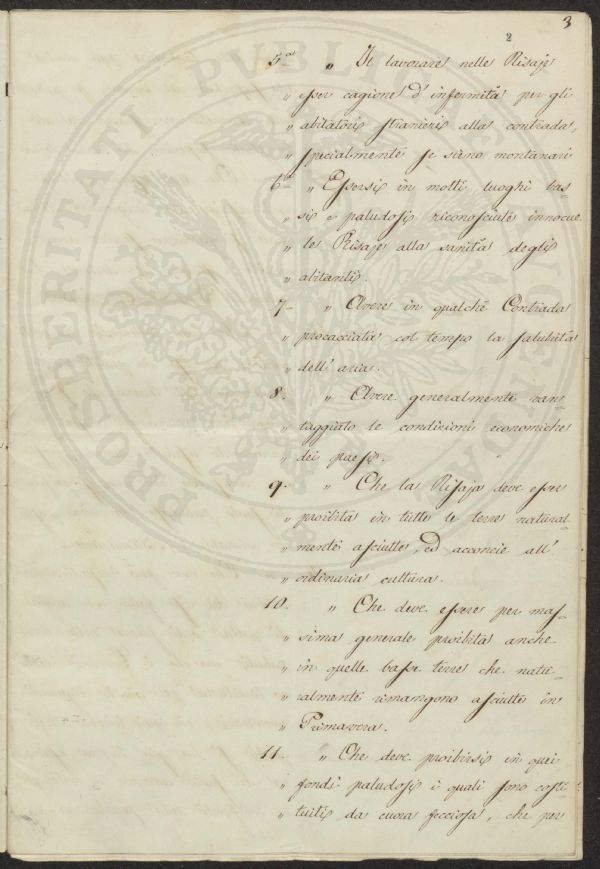 3
2
5ª " Il lavorare nelle Risaje
" esser cagione d'infermità per gli
" abitatori stranieri alla contrada,
" specialmente se sieno montanari
6ª " Essersi in molti luoghi bas-
" si e paludosi riconosciute innocue
" le Risaje alla sanità degli
" abitanti.
7- " Avere in qualche Contrada
" procacciata col tempo la salubrità
" dell'aria.
8. " Avere generalmente van-
" taggiato le condizioni economiche
" dei paesi.
9. " Che la Risaja deve esser
" proibita in tutte le terre natural-
" mente asciutte, ed acconcie all'
" ordinaria cultura.
10. " Che deve essere per mas-
" sima generale proibita anche
" in quelle basse terre che natu-
" ralmente rimangono asciutte in
" Primavera.
11. " Che deve proibirsi in quei
" fondi paludosi i quali sono costi-
" tuiti da cuora fecciosa, che per
PROSPERITATI PUBLICAE